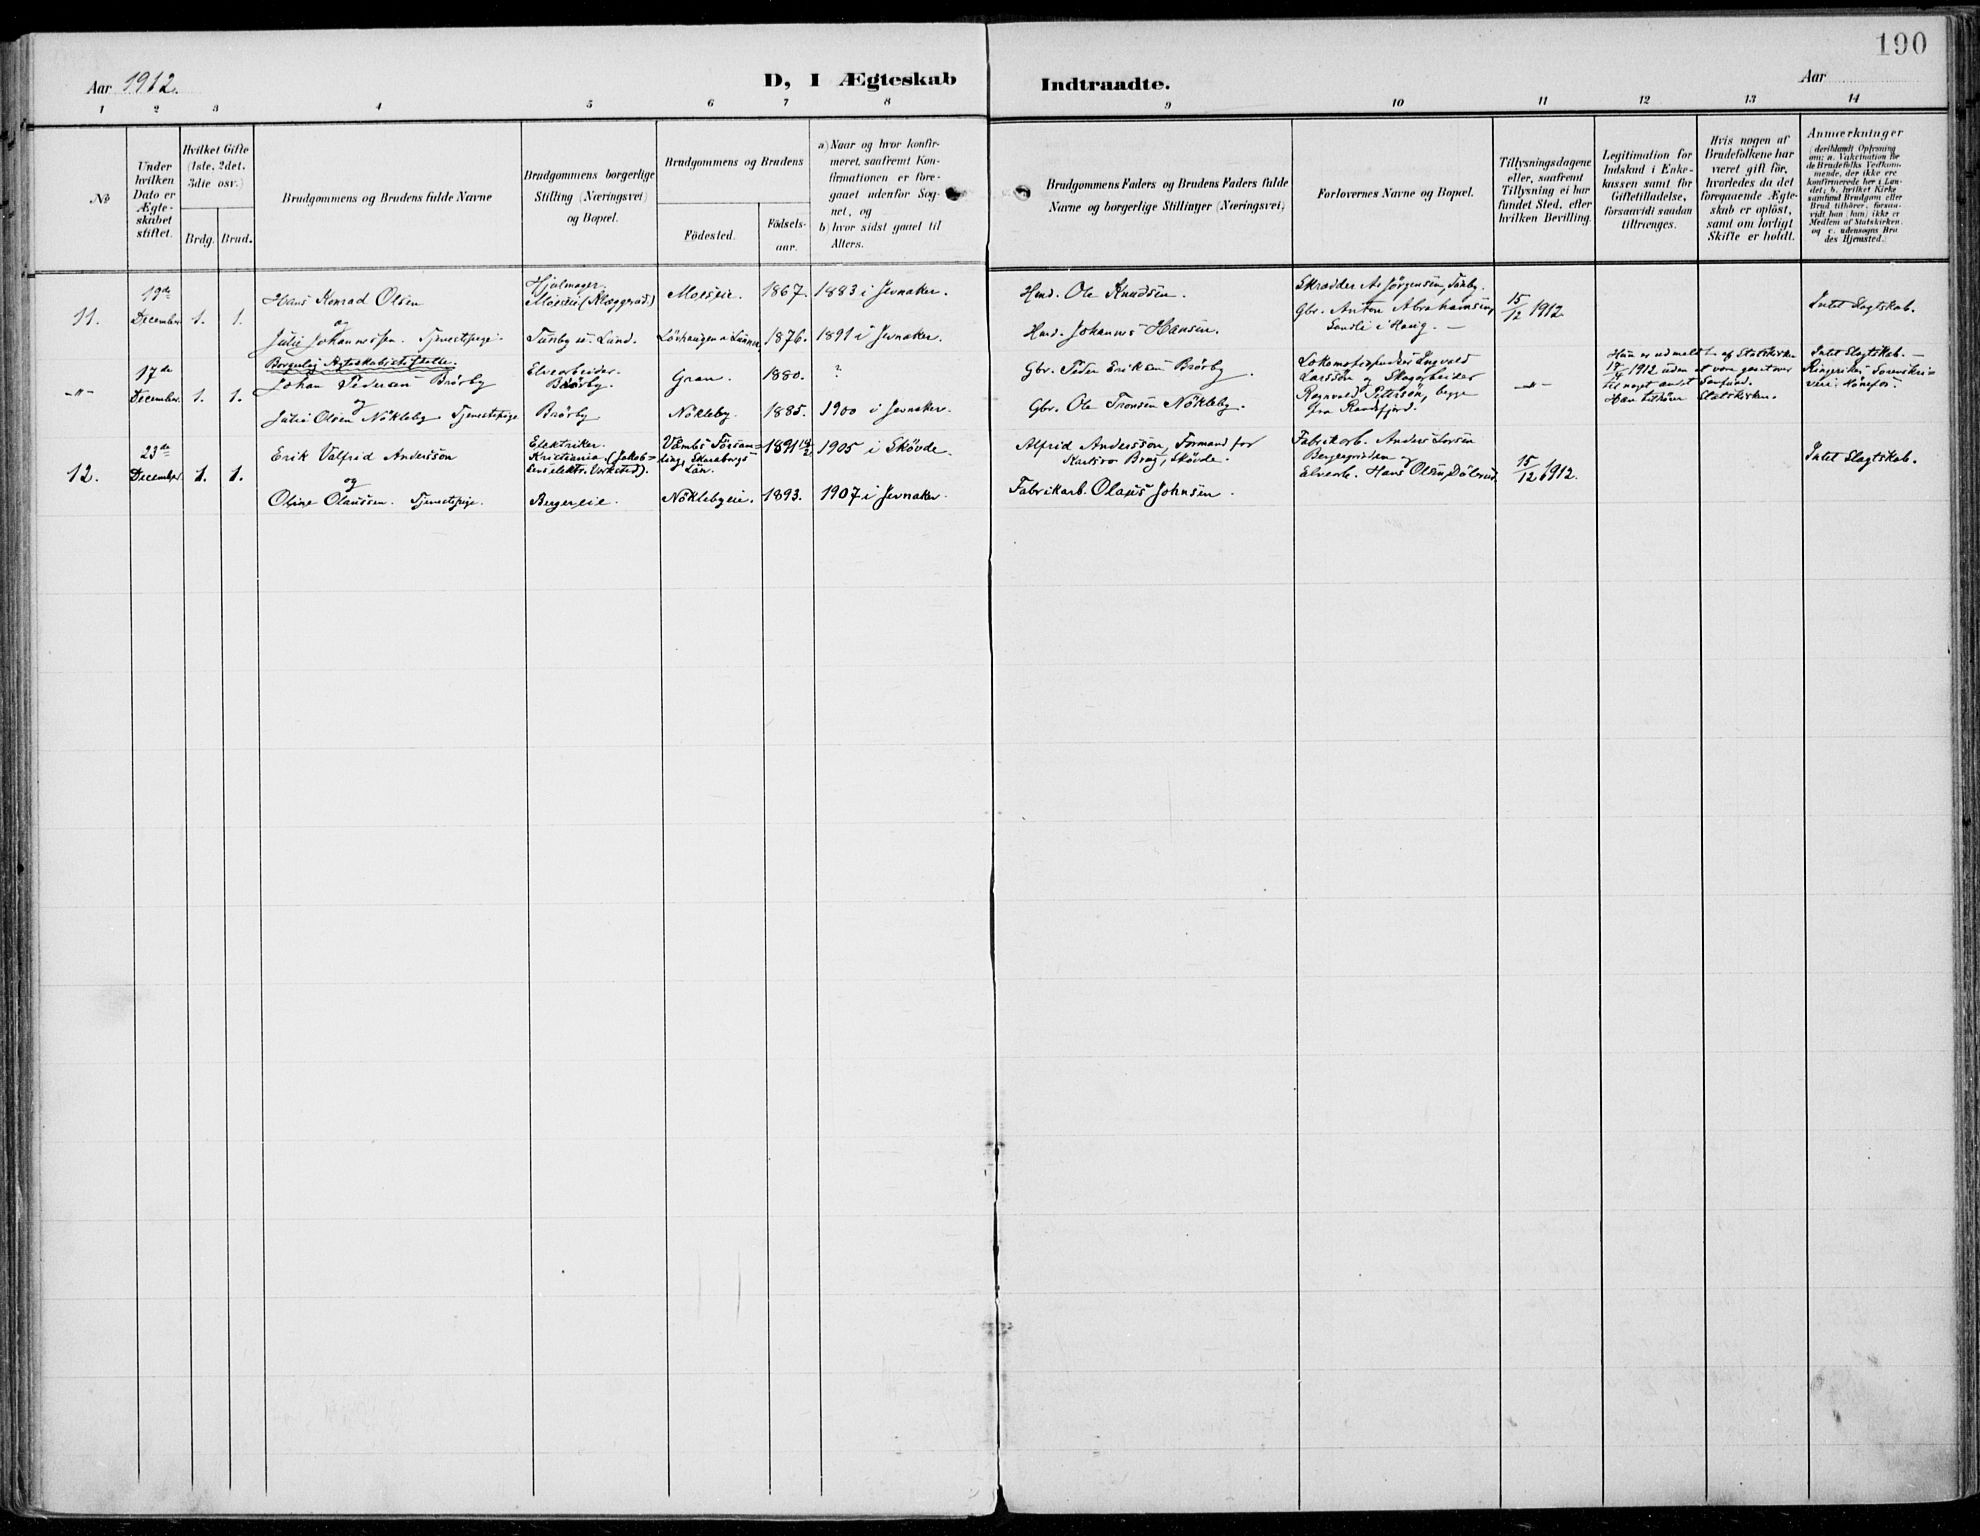 190
Aar 1912.
D, I Ægteskab Indtraadte.
Aar
1 2 3 4 5 6 7 8 9 10 11 12 13 14
№
Under hvilken Dato er Ægte-skabet stiftet.
Hvilket Gifte (1ste, 2det, 3die osv.)
Brdg. Brud.
Brudgommens og Brudens fulde Navne
Brudgommens borgerlige Stilling (Næringsvei) og Bopæl.
Brudgommens og Brudens
Fødested.
Fødsels-aar.
a) Naar og hvor konfir-meret, saafremt Kon-firmationen er fore-gaaet udenfor Sog-net, og
b) hvor sidst gaaet til Alters.
Brudgommens Faders og Brudens Faders fulde Navne og borgerlige Stillinger (Næringsvei)
Forlovernes Navne og Bopæl.
Tillysningsdagene eller, saafremt Tillysning ei har fundet Sted, efter hvilken Bevilling.
Legitimation for Indskud i Enke-kassen samt for Giftetilladelse, forsaavidt saadan tiltrænges.
Hvis nogen af Brudefolkene har været gift før, hvorledes da det foregaaende Ægte-skab er opløst, samt om lovligt Skifte er holdt.
Anmærkninger
(deriblandt Oplysning om: a. Vakcination for de Brudefolks Vedkom-mende, der ikke ere konfirmerede her i Lan-det; b. hvilket Kirke samfund Brudgom eller Brud tilhører, forsaa-vidt han (hun) ikke er Medlem af Statskirken og c. udensogns Bru des Hjemsted.)
11.
19de December
1. 1.
Hans Konrad Olsen
og
Julie Johannessen. Tjenestepige.
Hjulmager. Moeseie (Kleggerud.)
Tünby u. Lund.
Moeseie. 1867. 1883 i Jevnaker.
Løvhaugen i Lunner 1876. 1891 i Jevnaker.
Hmd. Ole Knudsen.
Hmd. Johannes Hansen.
Skrædder As Jörgensen, Tünby.
Gbr. Anton Abrahamsen, Sandli i Haug.
15/12 1912
Intet Slagtskab.
-"-
17de December
1. 1.
Borgerlig Ægteskabsstiftelse.
Johan Pedersen Brörby
og
Julie Olsen Nökleby Tjenestepige
Elvearbeider. Brörby.
Brörby
Gran. 1880. ?
Nökleby. 1885. 1900 i Jevnaker.
Gbr. Peder Eriksen Brörby.
Gbr. Ole Tronsen Nökleby.
Lokomotivpudser Ingvald Larsson og Skogarbeider Ragnvald Peterson, begge fra Randsfjord.
-"-
Hun er udmeldt af Statskirken 17/4 1912 uden at være gaaet over til noget andet Samfund. Han tilhører Statskirken.
Intet Slagtskab. — Ringerikes Sorenskri-veri: Hönefos.
12.
23de December
1. 1.
Erik Valfrid Andersson
og
Oline Olaussen. Tjenestepige.
Elektriker. Kristiania (Jakob-sens elektr. Verksted).
Bergereie.
Våmbs Församling, Skaraborgs Län. 1891 14/2 1905 i Skövde.
Nöklebyeie. 1893. 1907 i Jevnaker.
Alfrid Andersson, Formand for Karlsro Brug, Skövde.
Fabrikarb. Olaus Johnsen.
Fabrikarb. Anders Iversen Bergergrinden og
Elverb. Hans Olsen Dölerud.
15/12 1912.
Intet Slagtskab.